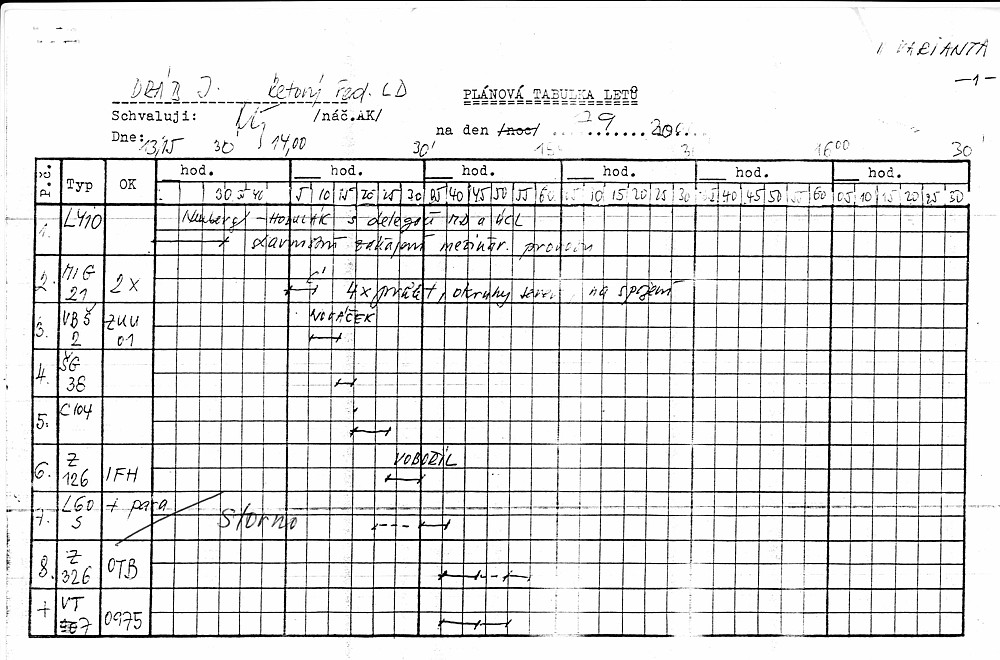 1 VARIANTA
-1-
DRÁB J. Letový řed. LD
PLÁNOVÁ TABULKA LETŮ
Schvaluji: /náč.AK/
na den /noc/ ....29......
Dne:
13,15 30' 14,00 30' 30' 16⁰⁰ 30'
P.č. Typ OK hod. hod. hod. hod. hod. hod.
30 35 40 5 10 15 20 25 30 35 40 45 50 55 60 10 15 20 25 30 35 40 45 50 55 60 05 10 15 20 25 30
1. L410 s delegací MD a ÚCL
slavnostní zahájení mezinár. provozu
2. MIG 21 2x 4x průlet, okruhy na spojení
3. VBŠ 2 ZUU 01 NOVÁČEK
4. ŠG 38
5. C104
6. Z 126 IFH VOBOŘIL
7. L60 S + para Storno
8. Z 326 OTB
+ VT 7 0975